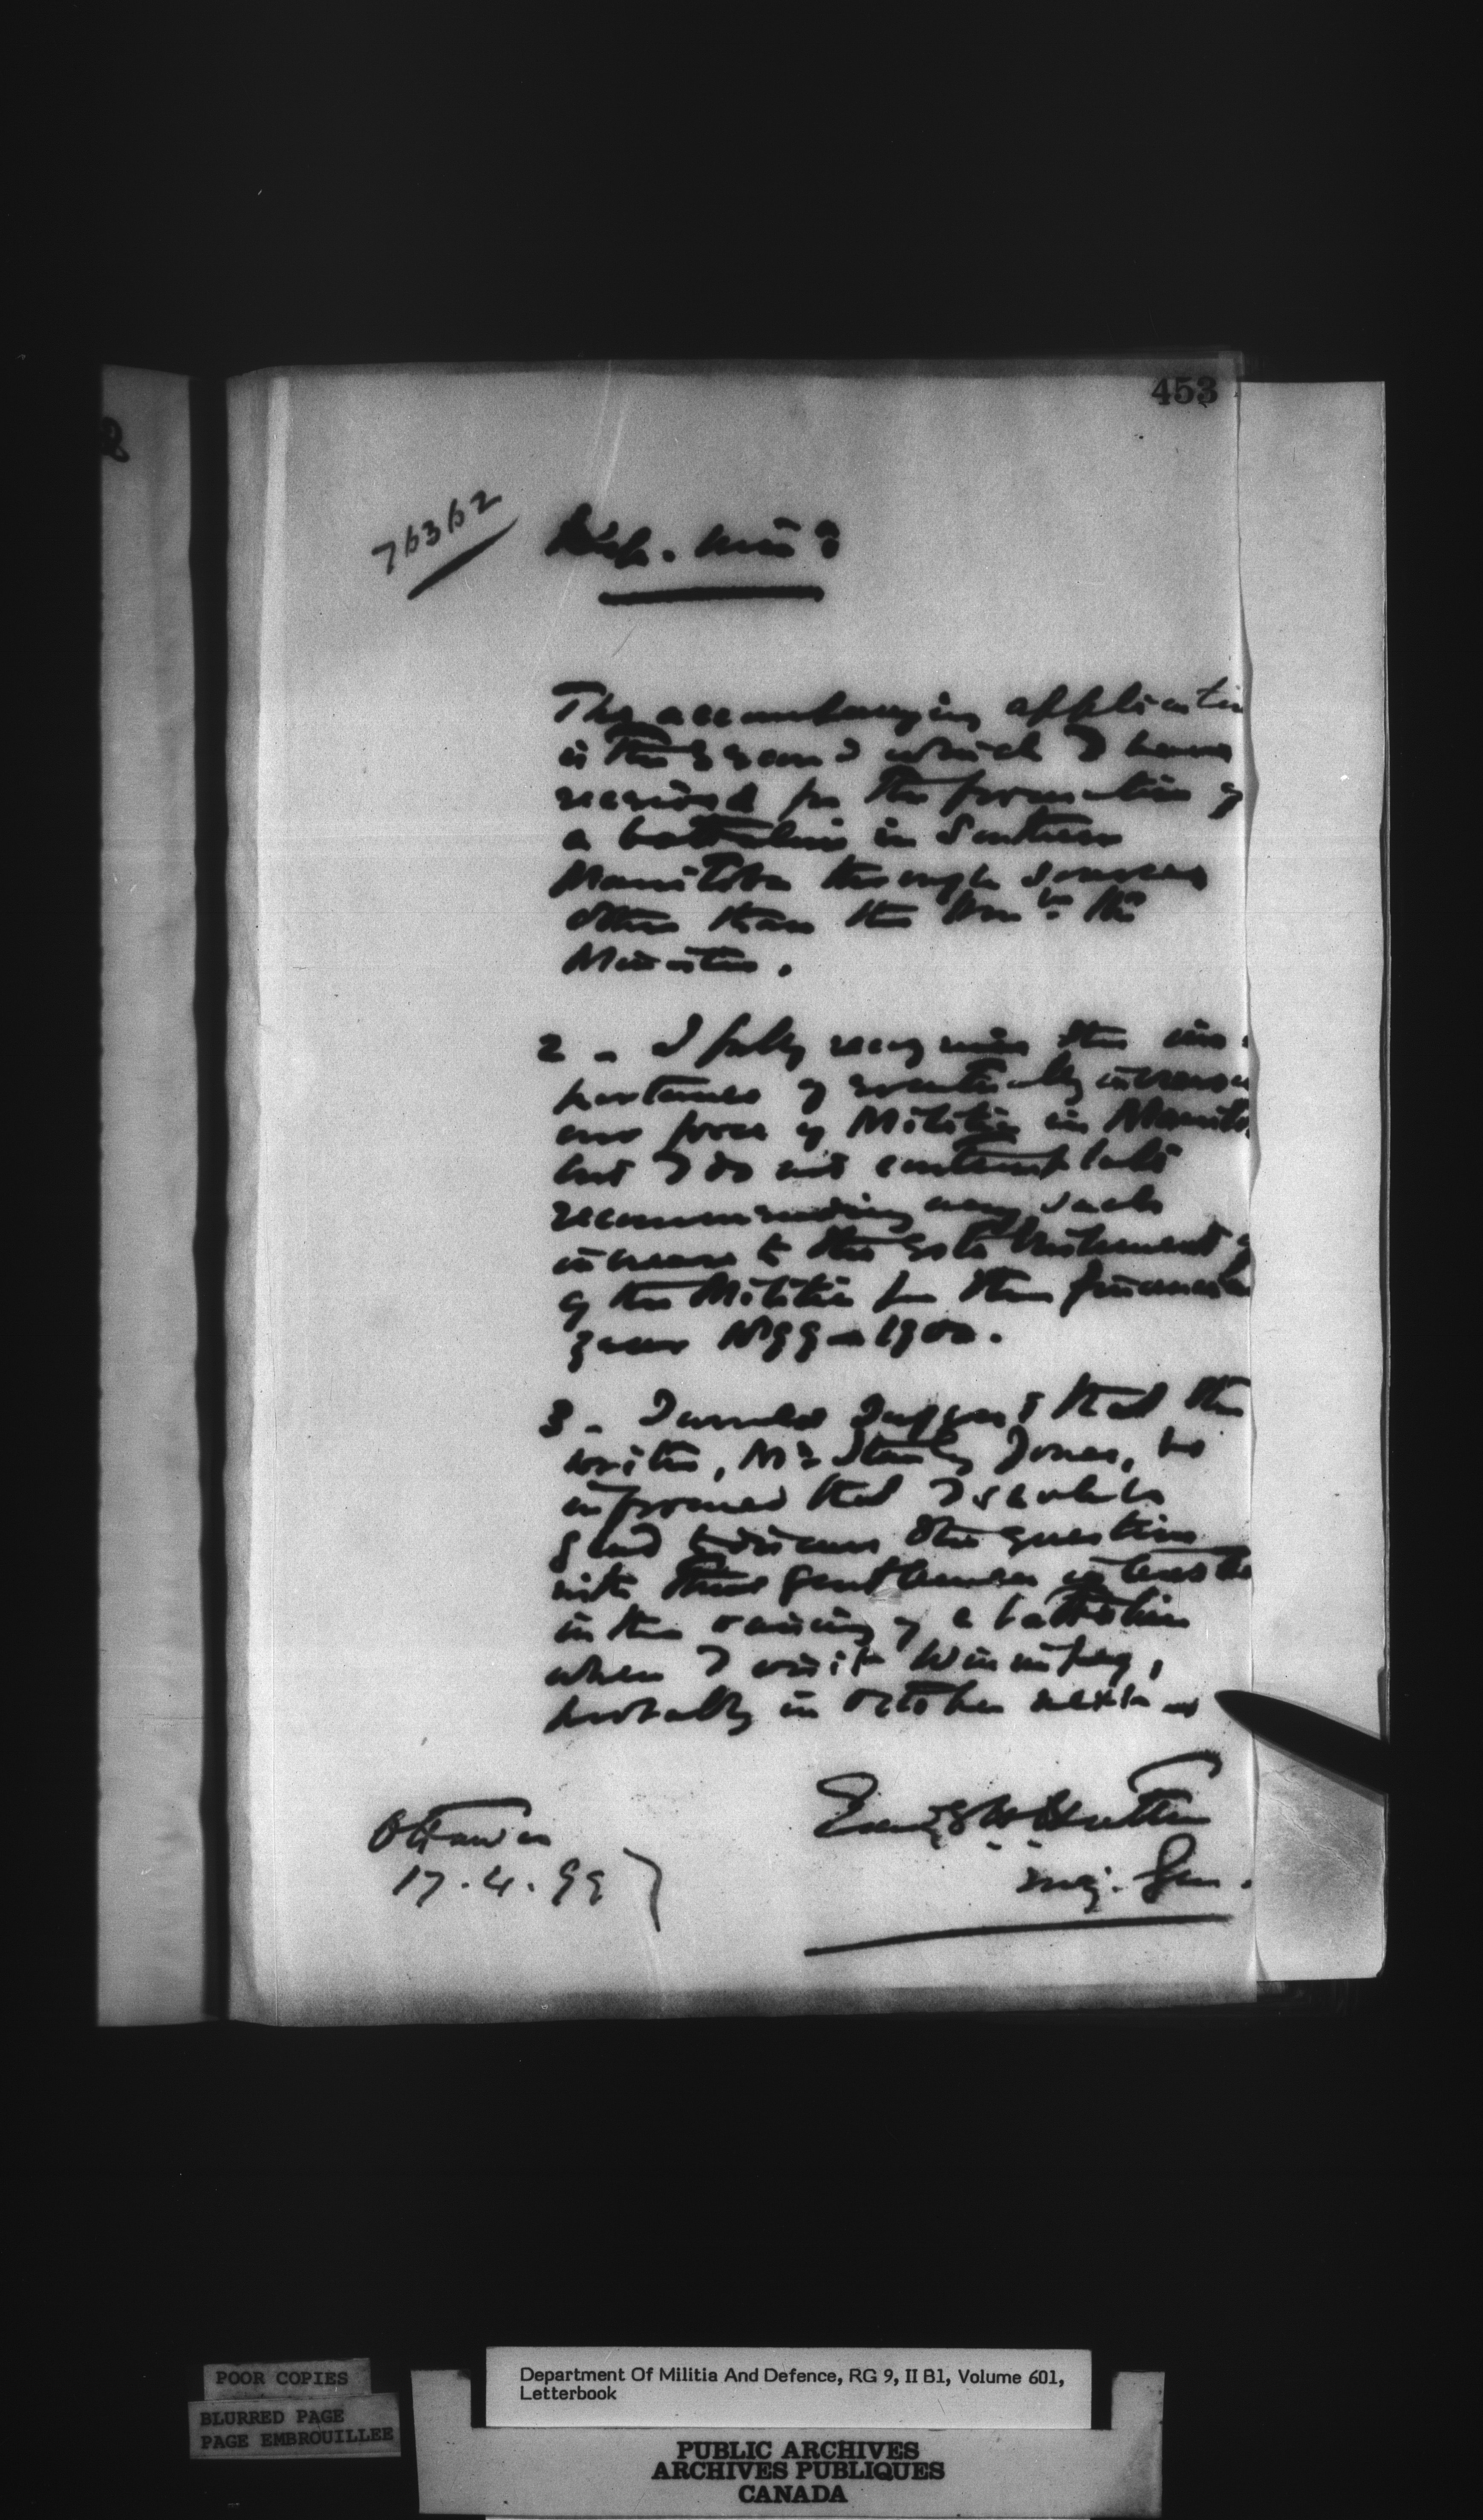 453
76362
Dep. Min.
The accompanying application
is the second which I have
received for the formation of
a battalion in Southern
Manitoba through sources
other than the Honble the
Minister.
2 - I fully recognise the im-
portance of eventually increasing
our force of Militia in Manitoba
but I do not contemplate
recommending any such
increase to the Establishment of
of the Militia for the financial
year 1899-1900.
3 - I would suggest that the
writer, Mr Stanley Jones, be
informed that I shall be
glad to discuss the question
with those gentlemen interested
in the raising of a battalion
when I visit Winnipeg,
probably in October next.
Hutton
Maj. Gen.
Ottawa
17.4.99
POOR COPIES
BLURRED PAGE
PAGE EMBROUILLEE
Department Of Militia And Defence, RG 9, II B1, Volume 601,
Letterbook
PUBLIC ARCHIVES
ARCHIVES PUBLIQUES
CANADA